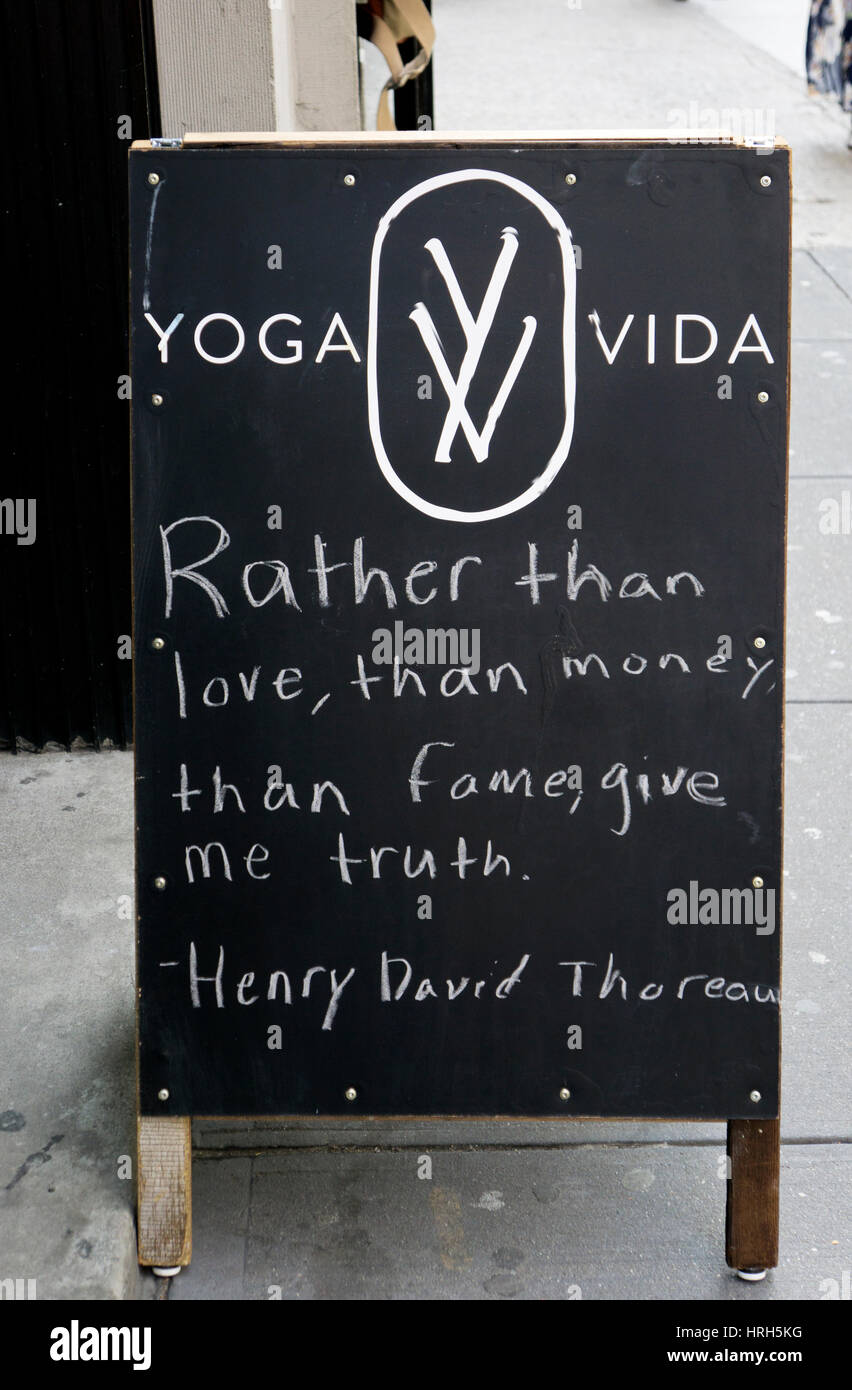 YOGA VIDA
Rather than
love, than money,
than fame, give
me truth.
-Henry David Thoreau
alamy
Image ID: HRH5KG
www.alamy.com